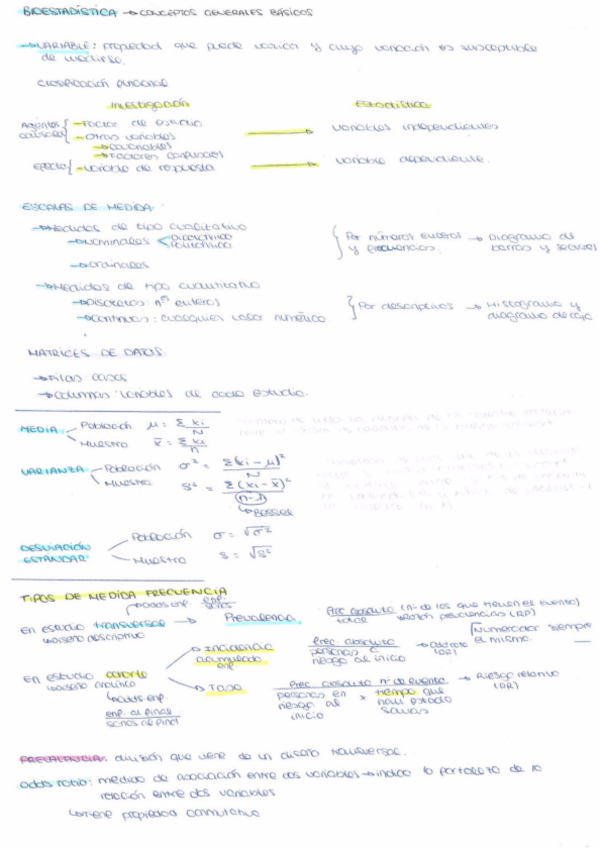 BIOESTADÍSTICA → CONCEPTOS GENERALES BÁSICOS
→ VARIABLE: propiedad que puede variar y cuya variación es susceptible
de medirse.
Clasificación funcional
Investigación Estadística
Agentes causales { - Factor de estudio → variables independientes
- Otras variables
→ covariables
→ Factores confusores
efecto { - variable de respuesta → variable dependiente.
ESCALAS DE MEDIDA
→ Medidas de tipo cualitativo
→ nominales < dicotómico
politómico
} Por números enteros y frecuencias. → Diagrama de barras y sectores
→ ordinales
→ Medidas de tipo cuantitativo
→ Discretos: nº enteros
→ continuos: cualquier valor numérico
} Por descriptivos → Histograma y diagrama de caja
MATRICES DE DATOS
→ Filas: casos
→ columnas: variables de cada estudio.
MEDIA Población μ = Σ xi / N
Muestra x̄ = Σ xi / n
VARIANZA Población σ² = Σ(xi - μ)² / N
Muestra s² = Σ(xi - x̄)² / (n-1)
→ Bessel
DESVIACIÓN ESTÁNDAR Población σ = √σ²
Muestra s = √s²
TIPOS DE MEDIDA FRECUENCIA
→ odds enf. enf. / sanos
En estudio transversal → Prevalencia
→ diseño descriptivo
Frec absoluta (nº de los que tienen el evento) / total
→ razón prevalencias (RP)
Numerador siempre el mismo.
En estudio cohorte
→ diseño analítico
→ odds enf.
enf. al final / sanos al final
→ Incidencia acumulada
enf
Frec. absoluta / personas a riesgo al inicio → (OR)
→ Tasa
Frec absoluta nº de evento / personas en riesgo al inicio × tiempo que han estado → Riesgo relativo (RR)
PREVALENCIA: división que viene de un diseño transversal.
odds ratio: medida de asociación entre dos variables → indica la fortaleza de la
relación entre dos variables
→ tiene propiedad conmutativa